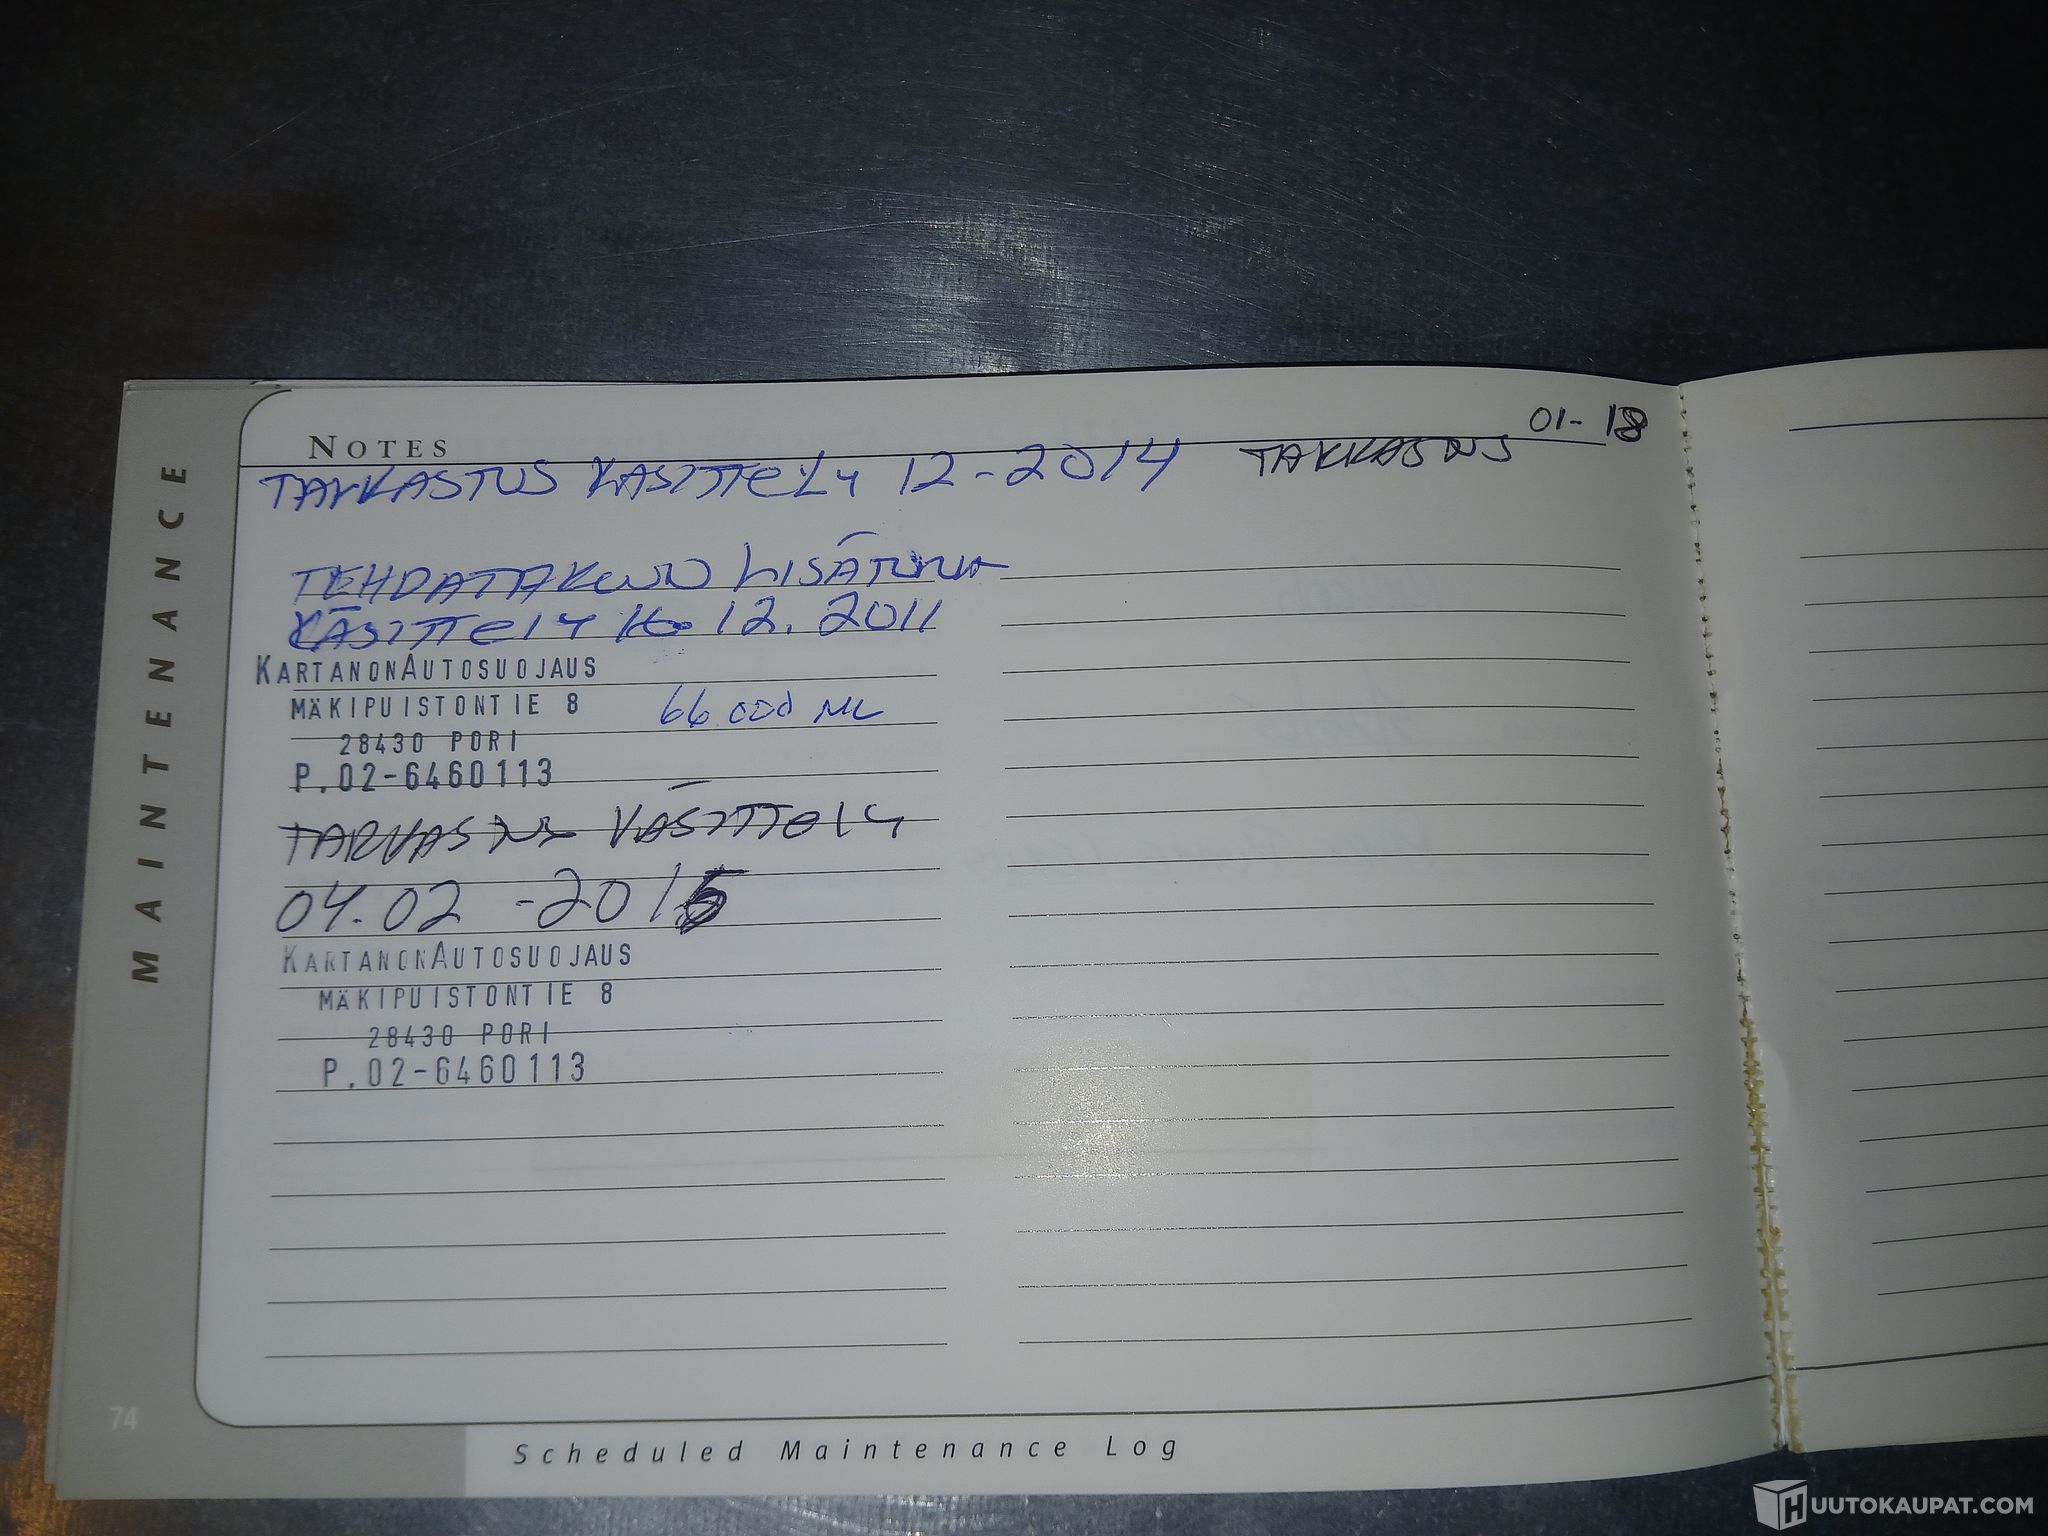 MAINTENANCE
NOTES
01-18
TARKASTUS KÄSITTELY 12-2014 TARKASTUS
TEHDASTAKUUN LISÄTURVA
KÄSITTELY 16.12.2011
KARTANONAUTOSUOJAUS
MÄKIPUISTONTIE 8 66 000 ML
28430 PORI
P.02-6460113
TARKASTUS KÄSITTELY
04.02-2015
KARTANONAUTOSUOJAUS
MÄKIPUISTONTIE 8
28430 PORI
P.02-6460113
74
Scheduled Maintenance Log
HUUTOKAUPAT.COM